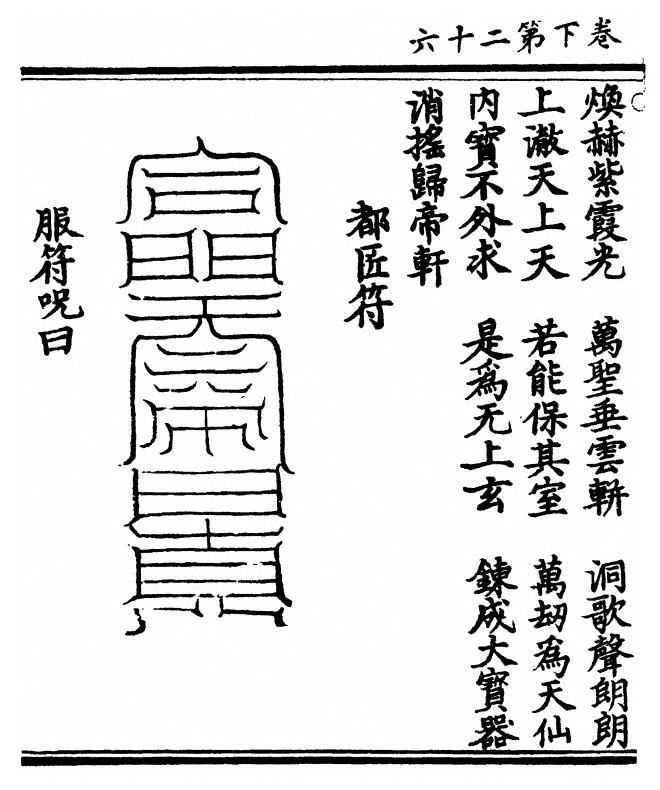 卷下第二十六
煥赫紫霞光　萬聖垂雲軿　洞歌聲朗朗
上澈天上天　若能保其室　萬刧爲天仙
内寶不外求　是爲无上玄　鍊成大寶器
消搖歸帝軒
都匠符
服符呪曰